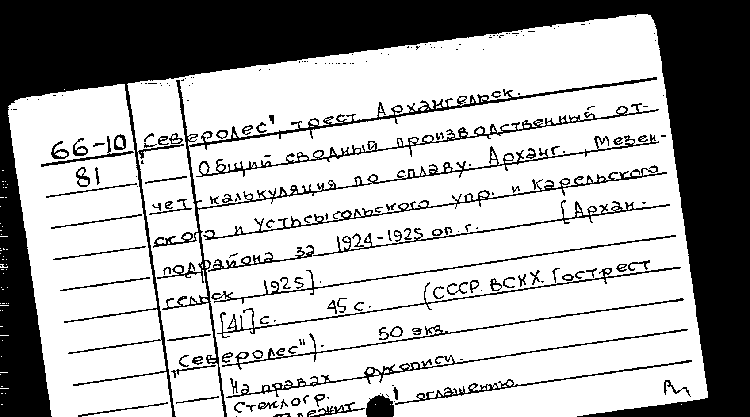 66-10 „Северолес", трест. Архангельск.
81 Общий сводный производственный от-
чет-калькуляция по сплаву. Арханг., Мезен-
ского и Устьсысольского упр. и Карельского
подрайона за 1924-1925 оп. г. [Архан-
гельск, 1925].
[41] с. 45 с. (СССР. ВСНХ. Гострест
„Северолес"). 50 экз.
На правах рукописи.
Стеклогр.
оглашению.